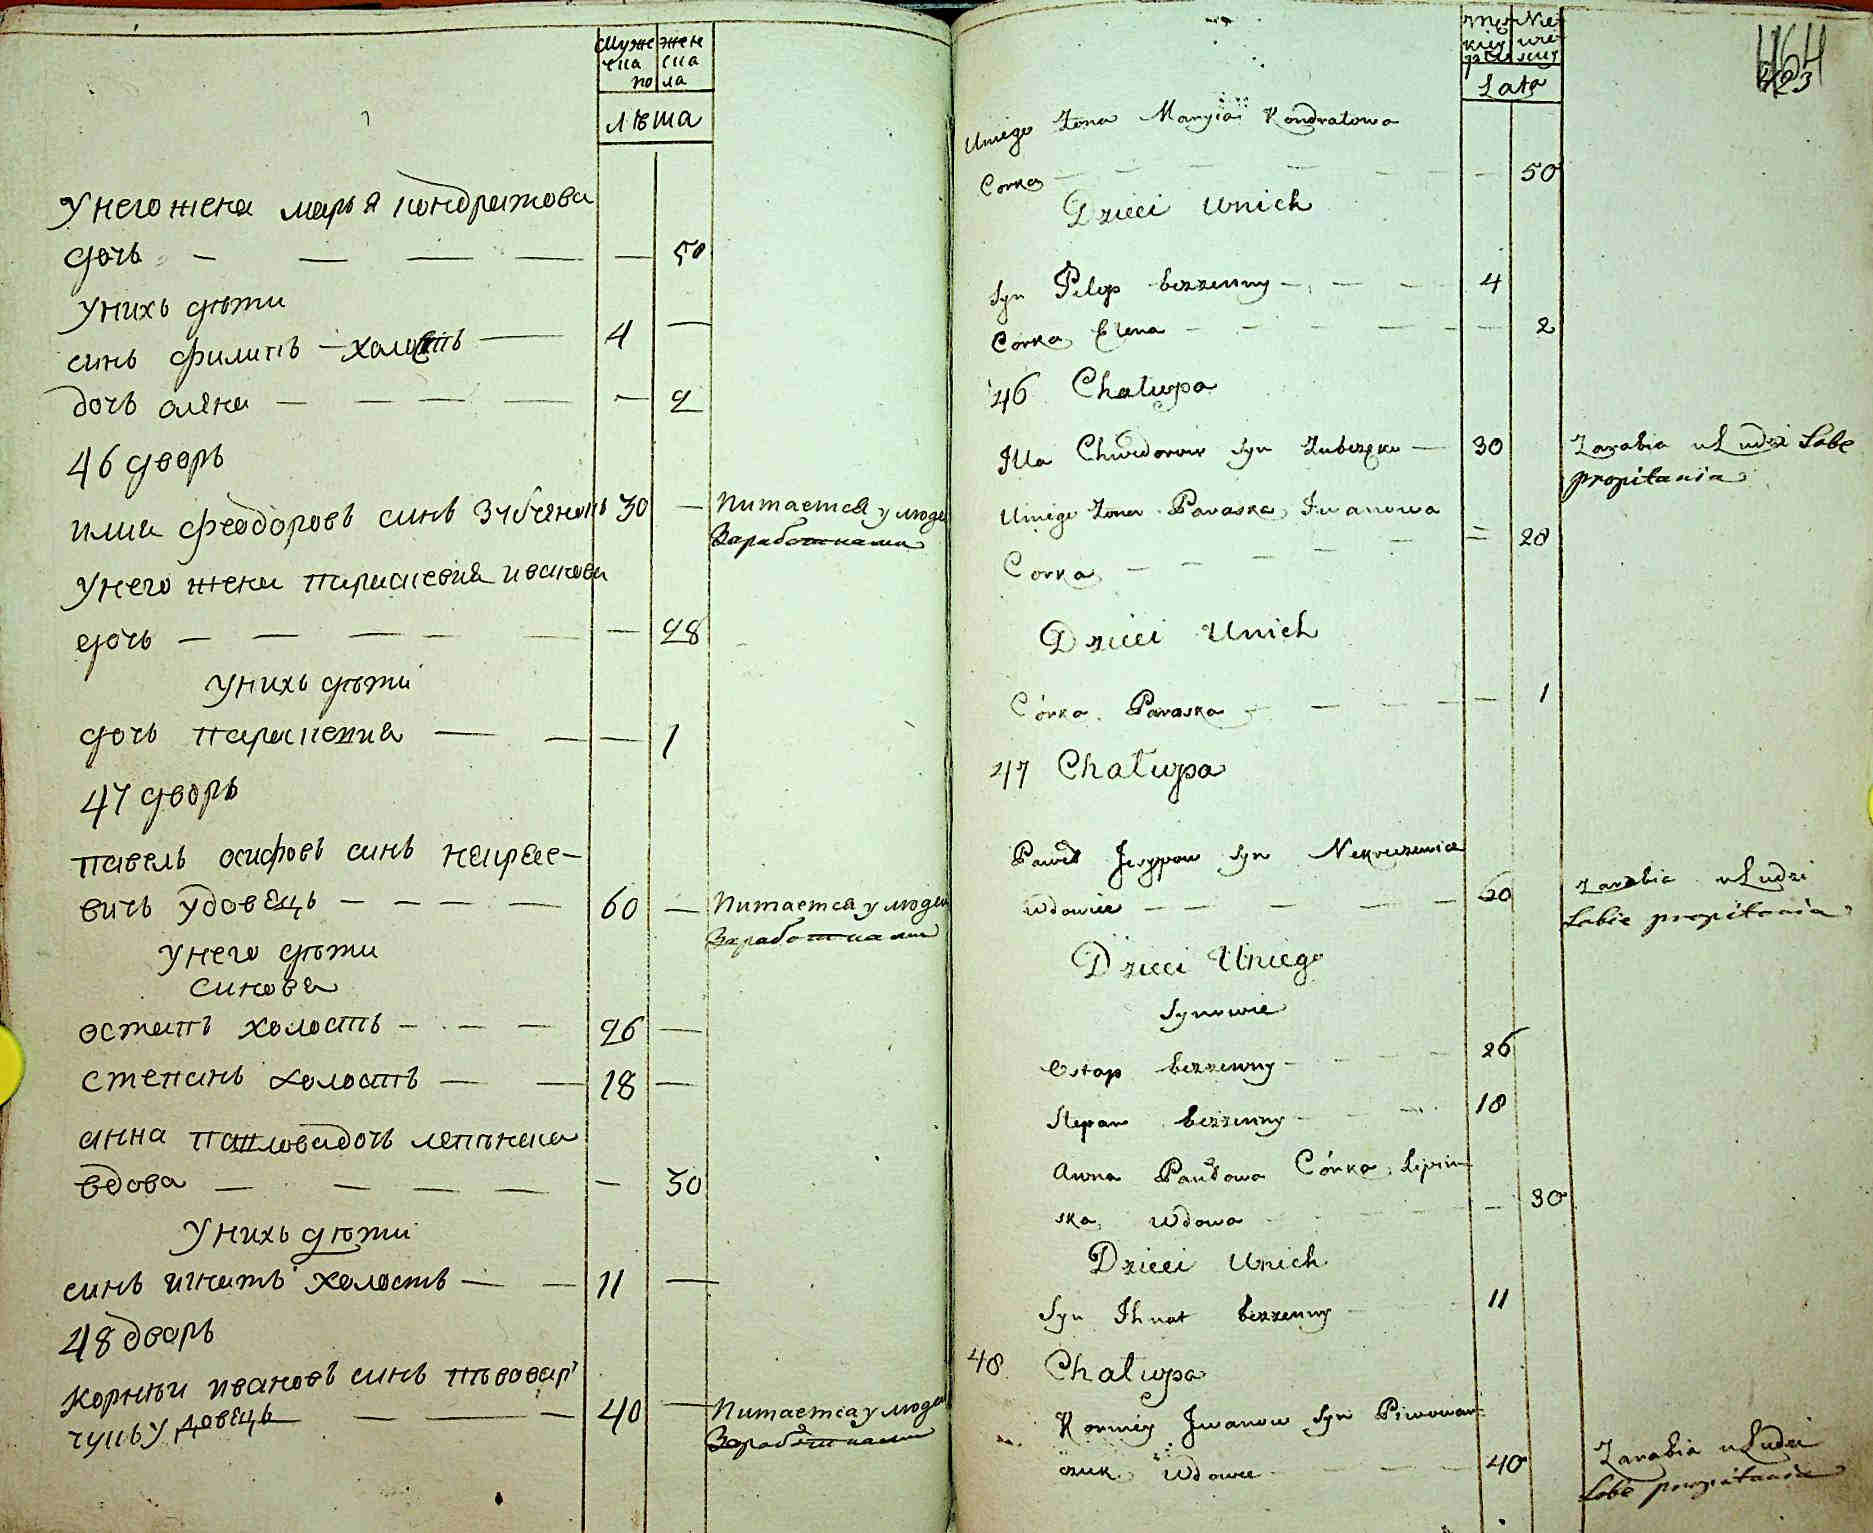 Муже жен
ска ска
по ла
лѣта
У него жена марья кондратова
дочь — — — — — 50
У нихъ дѣти
синъ филипъ — холостъ — 4 —
дочь олена — — — — — 2
46 дворъ
илия феодоровъ синъ Зубченокъ 30 — питается у людей
Заработками
У него жена параскевия иванова
дочь — — — — — — 28
У нихъ дѣти
дочь параскевия — — — 1
47 дворъ
павелъ осифовъ синъ некрасе-
вичъ удовецъ — — — — 60 — питается у людей
Заработками
У него дѣти
синове
остапъ холостъ — — — 26 —
степанъ холостъ — — 18 —
анна павловадочь
вдова — — — — — 30
У нихъ дѣти
синъ игнатъ холостъ — — 11 —
48 дворъ
корнѣи ивановъ синъ пѣвовар
чукъ удовецъ — — — 40 — питается у людей
Заработками
464
423
Lata
Uniego Zona Maryia Kondratowa
Corka — — — — — — 50
Dzieci Unich
Syn Pilip bezzenny — — — 4
Corka Elena — — — — — — 2
46 Chałupa
Illa Chwedorow Syn — 30 Zarabia u Ludzi Sobe
propitania
Uniego Zona Paraska Iwanowa
Corka — — — — = 28
Dzieci Unich
Córka Paraska — — — — — 1
47 Chałupa
Paweł Jozypow Syn Nekraszewicz
wdowiec — — — — — 60 Zarabia u Ludzi
Sobie propitania
Dzieci Uniego
Synowie
Ostap bezzenny — — — — 26
Stepan bezzenny — — — 18
Anna Pawłowa Córka Lipin
ska wdowa — — — — 30
Dzieci Unich
Syn Ihnat bezzenny — — 11
48 Chałupa
Korniey Iwanow Syn Piwowar-
czuk Wdowiec — — — — 40 Zarabia u Ludzi
Sobe propitania